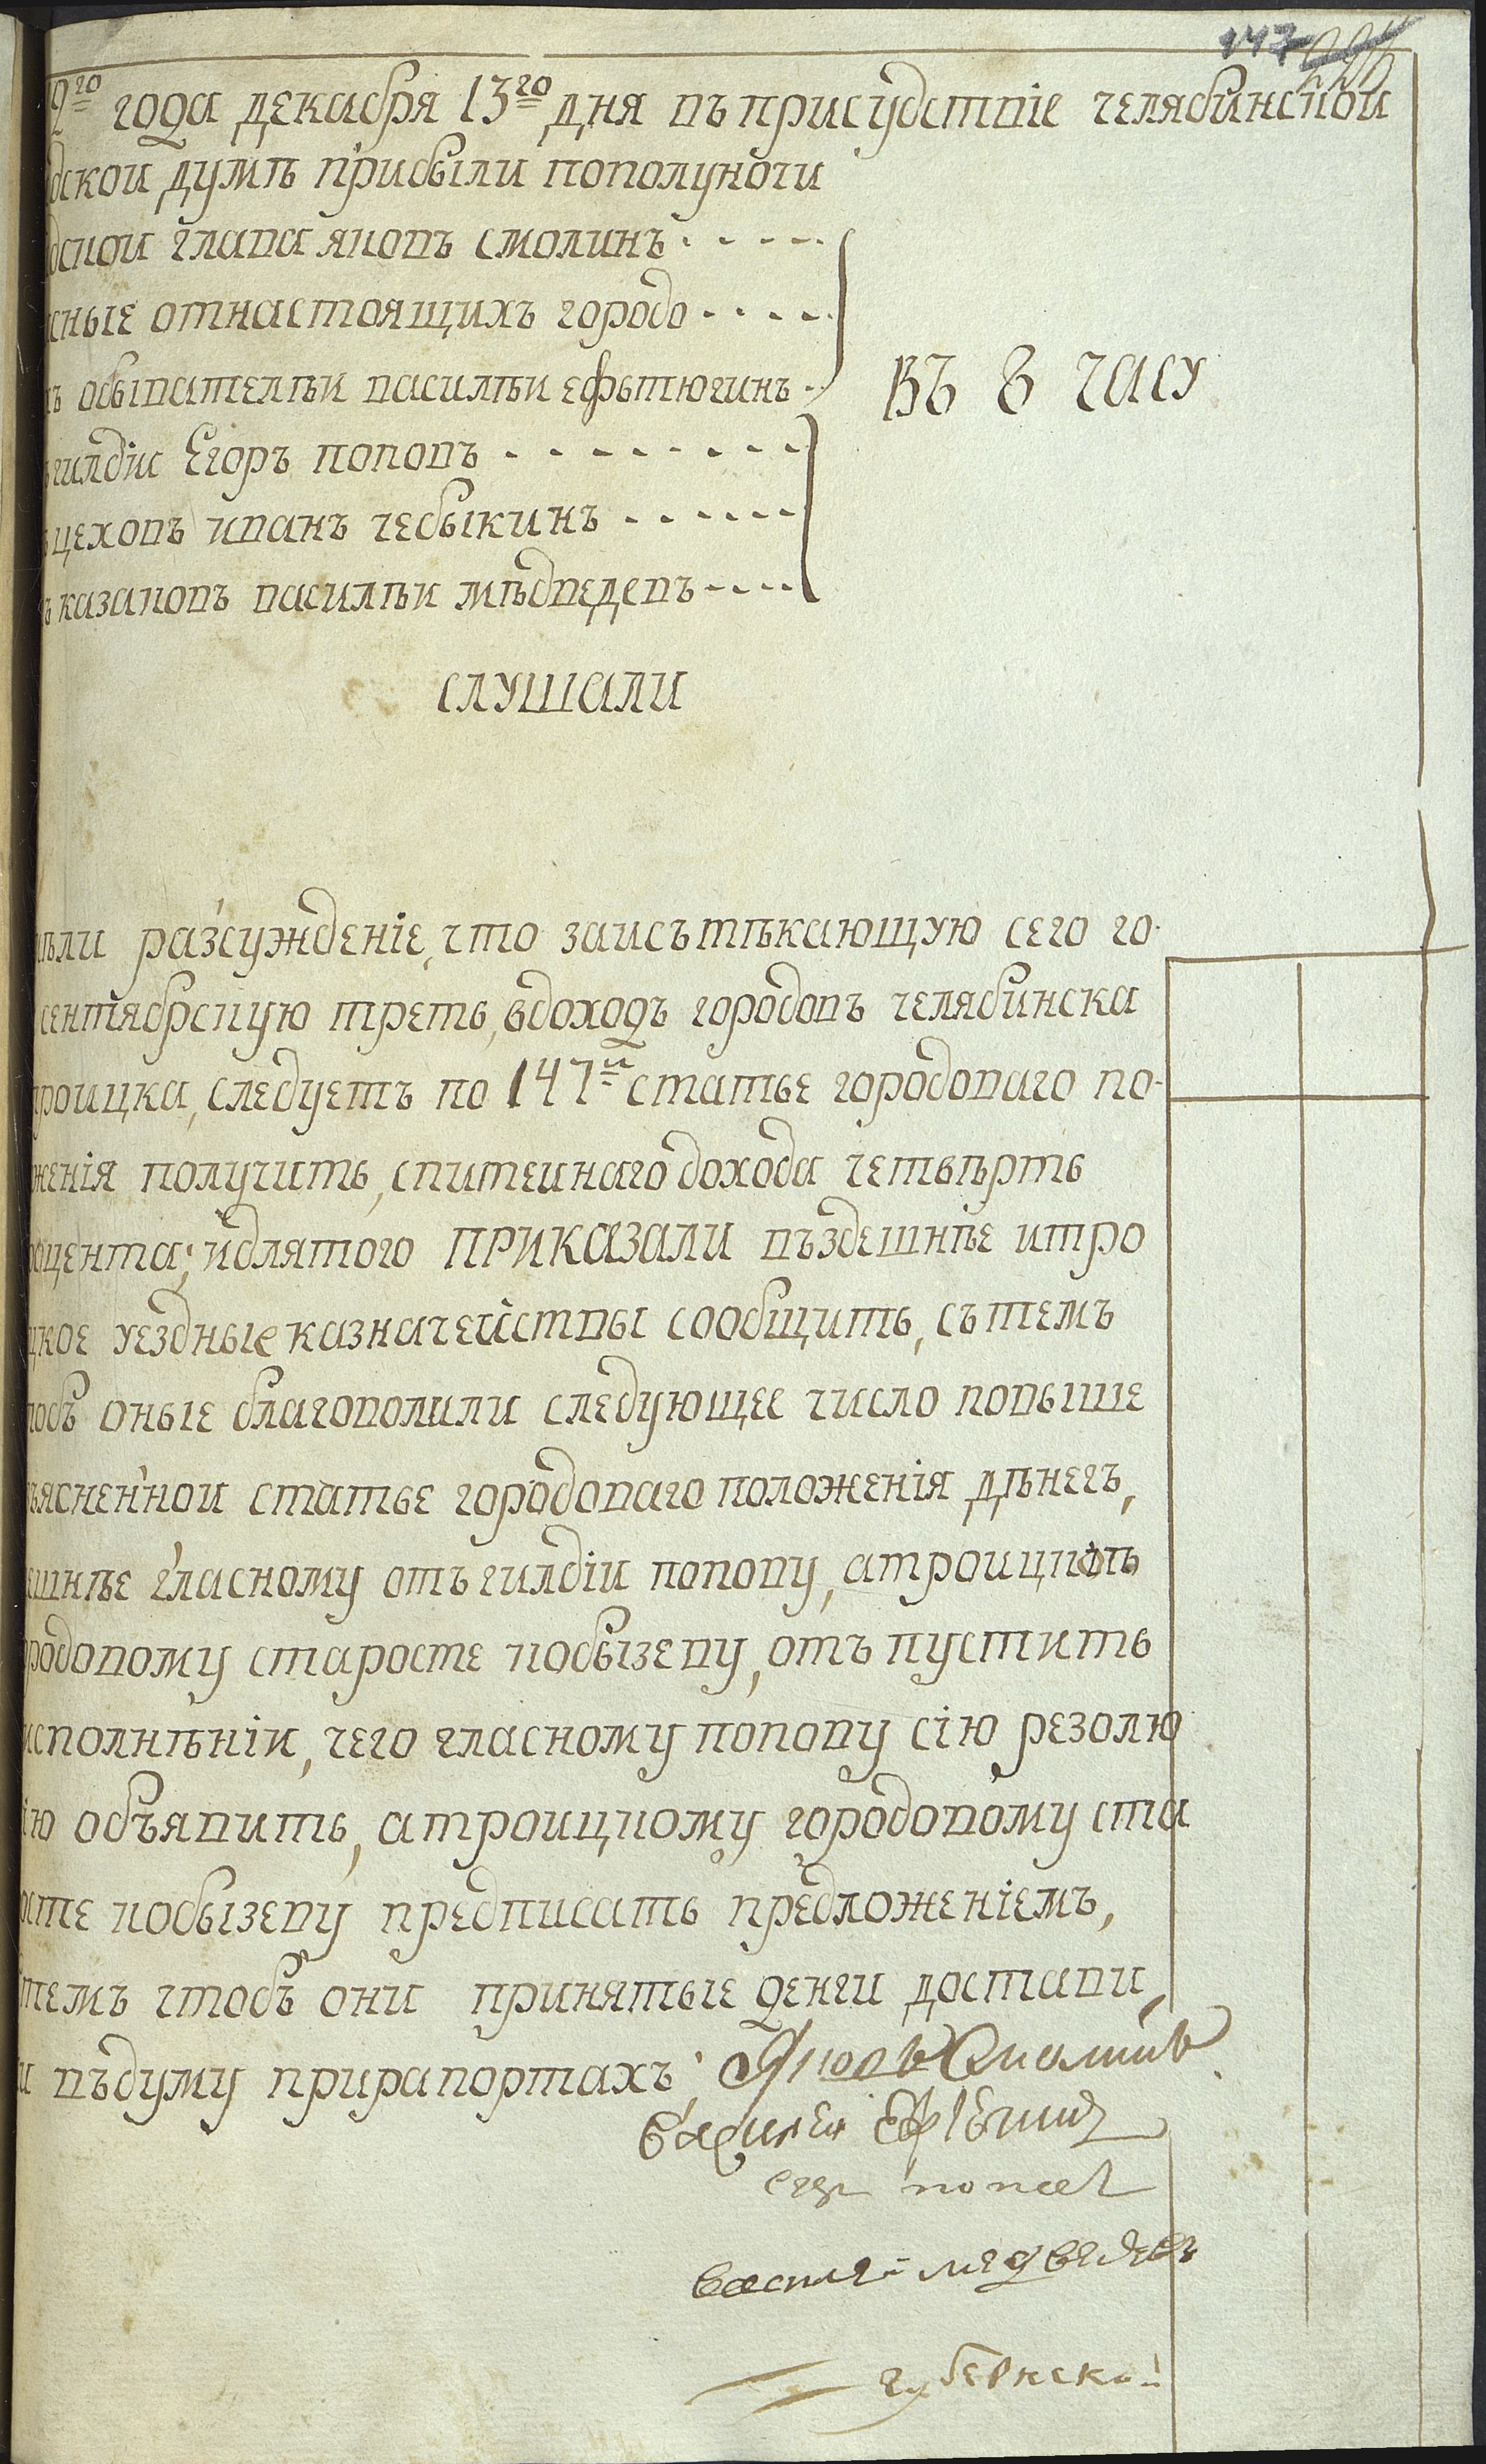 147
9го года декабря 13го дня въ присудствіе челябинской
дской думѣ прибыли пополуночи
дской глава яковъ смолинъ
сные отнастоящихъ городо
ъ обывателѣй василѣй ефьтюгинъ
гилдіи Егоръ поповъ
цеховъ иванъ чебыкинъ
казаковъ василѣй мѣдведевъ
Въ 8 часу
слушали
мѣли разсужденіе, что заисътѣкающую сего го-
сентябрскую треть, вдоходъ городовъ челябинска
троицка, следуетъ по 147й статье городоваго по-
женія получить, спитейнаго дохода четвѣрть
оцента; идлятого ПРИКАЗАЛИ въздешнѣе итро
цкое уездные казначействы сообщить, сътемъ
тобъ оные благоволили следующее число повыше
ъясненной статье городоваго положенія дѣнегъ,
ешнѣе гласному отъ гилдіи попову, атроицкое
родовому старосте кобызеву, отъпустить
исполнѣніи, чего гласному попову сію резолю
ію объявить, атроицкому городовому ста
осте кобызеву предписать предложеніемъ,
темъ чтобъ они принятые денги достави
и въдуму прирапортахъ; Яковъ Смолинъ
Василей
егор попов
василей медведевъ
губернской